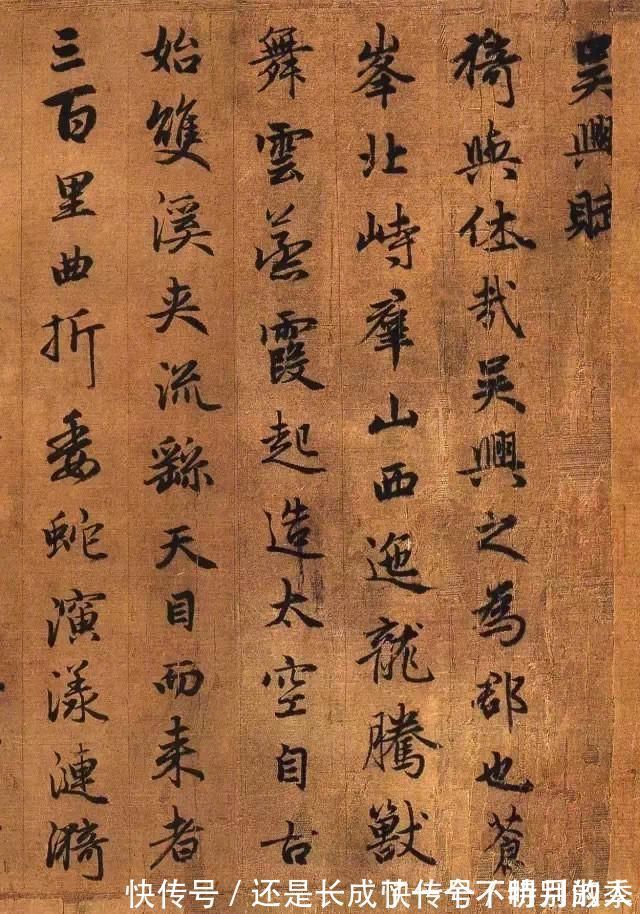 吳興賦
猗與休哉吳興之為郡也蒼
峯北峙羣山西迤龍騰獸
舞雲蒸霞起造太空自古
始雙溪夾流繇天目而来者
三百里曲折委蛇演漾漣漪
快传号 / 还是长成
快传号